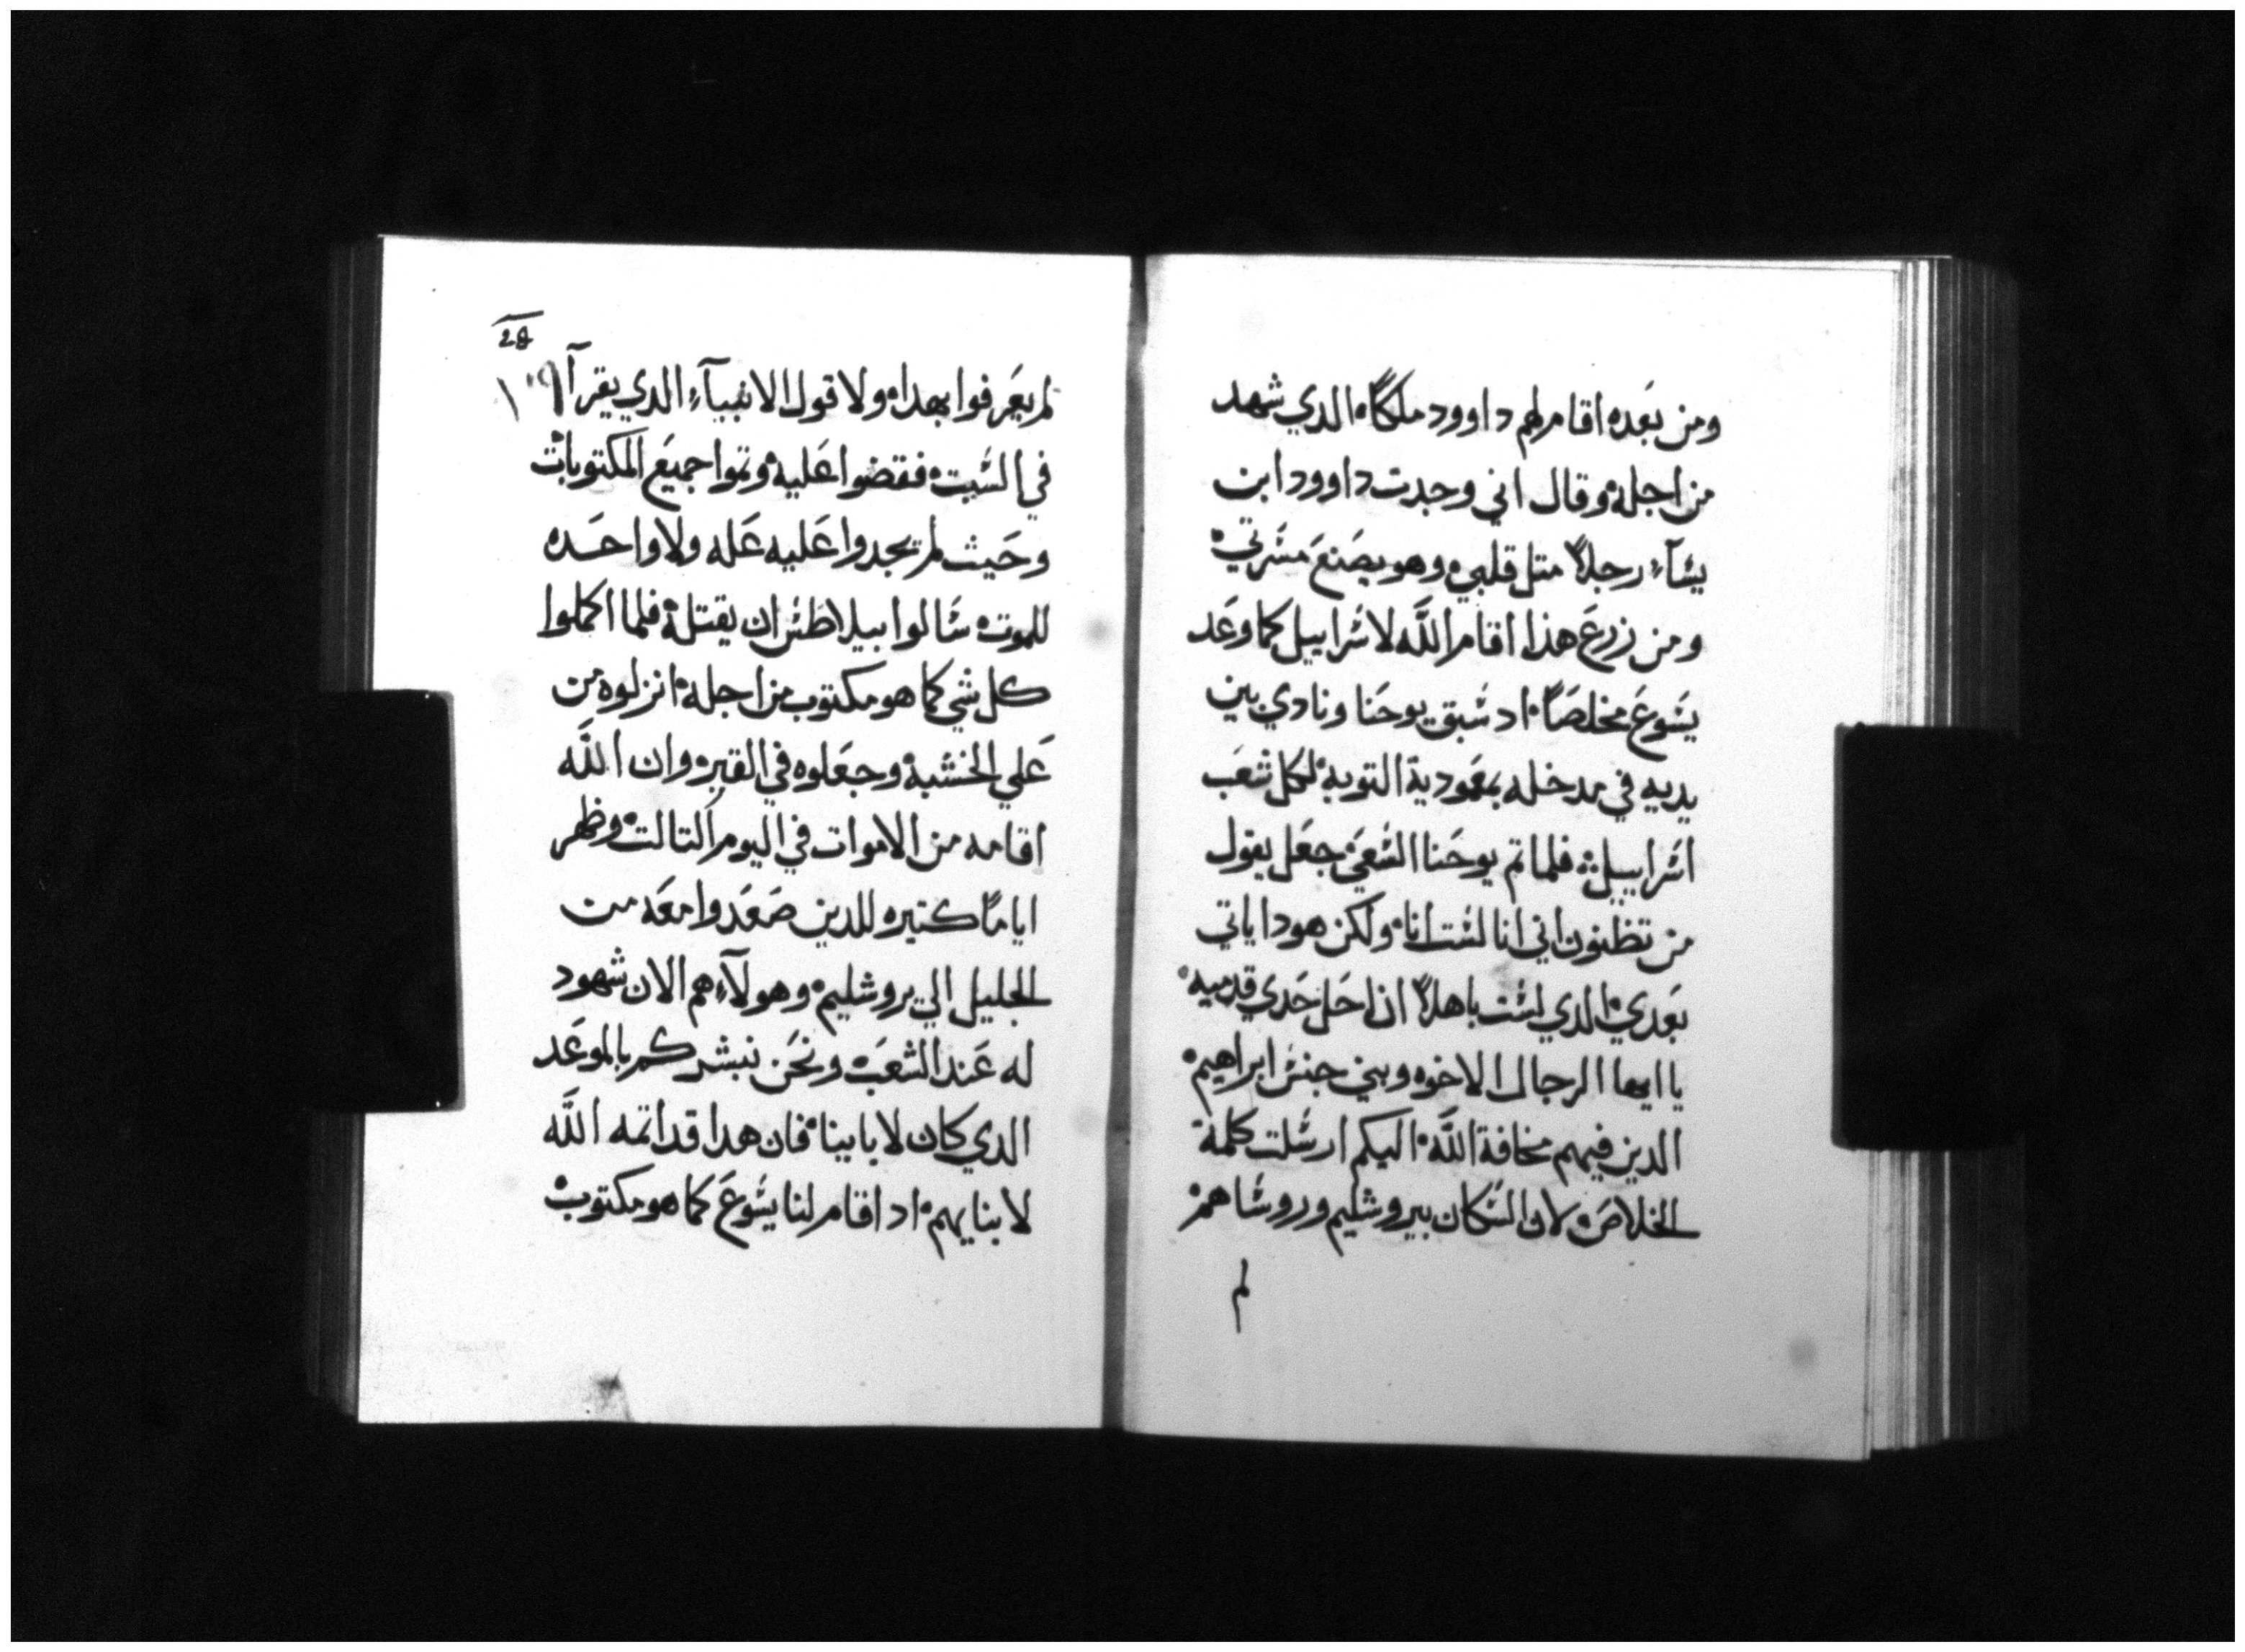 ومن بعَده اقامر لهم داوود ملكاً الدي شهد
من اجله وقال اني وجدت داوود ابن
يسآء رجلاً متل قلبي وهو يصَنعَ مسَرتي
ومن زرعَ هذا اقام اللَّه لاسَراييل كما وعَد
يسَوعَ مخلصَاً اد سَبق يوحَنا ونادي بين
يديه في مدخله بمعَمودية التوبه لكل شعَب
اسَراييل فلما تم يوحَنا السَعَي جعَل يقول
من تظنون اني انا لسَت انا ولكن هودا ياتي
بعَدي الدي لسَت باهلاً ان احَل حَدي قدميه
يا ايها الرجال الاخوه وبني جنسَ ابراهيم
الدين فيهم مخافة اللَّه اليكم ارسَلت كلمة
الخلاصَ لان السَكان بيروشليم وروسَاهم
لم
28
لم يعَرفوا بهدا ولا قول الانبيآء الدي يقرآ
في السَبت فقضوا عَليه وتموا جميعَ المكتوبات
وحَيث لم يجدوا عَليه عَله ولا واحَده
للموت سَالوا بيلاطسَ ان يقتله فلما اكملوا
كل شي كما هو مكتوب من اجله انزلوه من
عَلي الخشبة وجعَلوه في القبر وان اللَّه
اقامه من الاموات في اليوم التالت وظهر
اياماً كتيره للدين صَعَدوا معَه من
الجليل الي يروشليم وهولآء هم الان شهود
له عَند الشعَب ونحَن نبشركم بالموعَد
الدي كان لابايينا فان هدا قد اتمه اللَّه
لابنايهم اد اقامر لنا يسَوعَ كما هو مكتوب